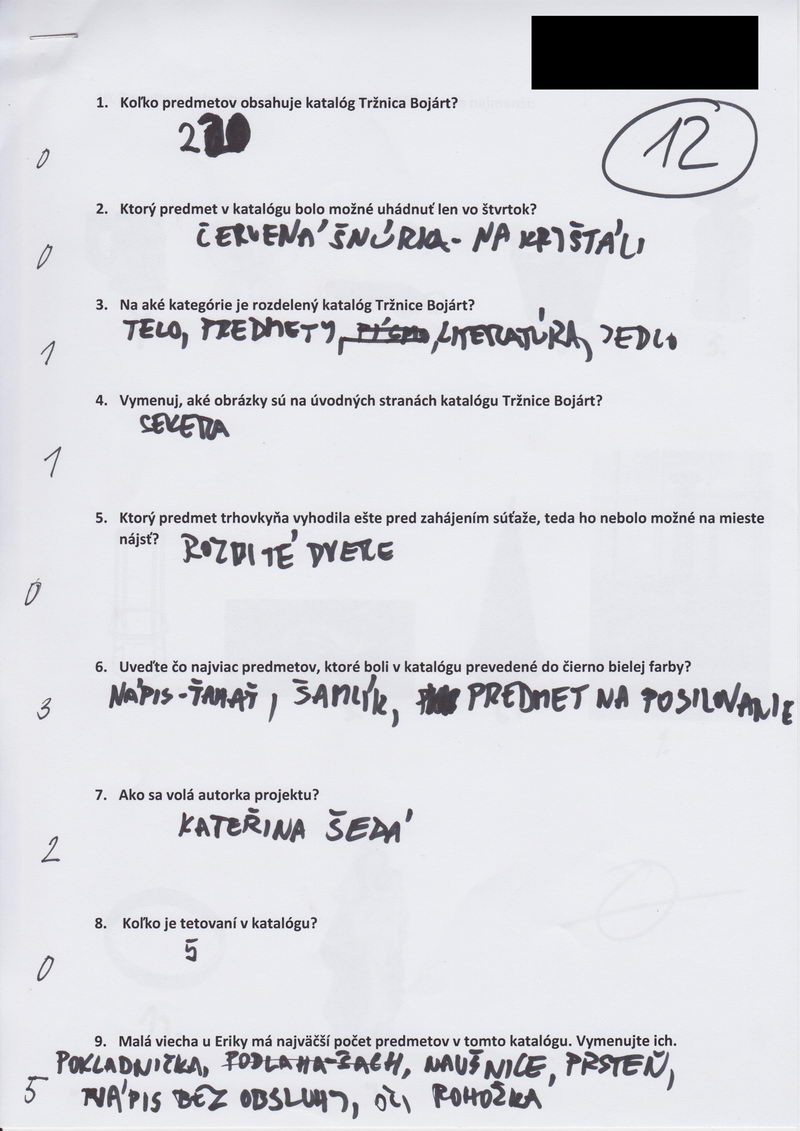 1. Koľko predmetov obsahuje katalóg Tržnica Bojárt?
12
0
2. Ktorý predmet v katalógu bolo možné uhádnuť len vo štvrtok?
ČERVENÁ ŠNÚRKA - NA KRYŠTÁLI
0
3. Na aké kategórie je rozdelený katalóg Tržnice Bojárt?
TELO, PREDMETY, LITERATÚRA, JEDLO
1
4. Vymenuj, aké obrázky sú na úvodných stranách katalógu Tržnice Bojárt?
SEKERA
1
5. Ktorý predmet trhovkyňa vyhodila ešte pred zahájením súťaže, teda ho nebolo možné na mieste
nájsť? ROZBITÉ DVERE
0
6. Uveďte čo najviac predmetov, ktoré boli v katalógu prevedené do čierno bielej farby?
NÁPIS-ŤAHAŤ, ŠAMLÍK, PREDMET NA POSILOVANIE
3
7. Ako sa volá autorka projektu?
KATEŘINA ŠEDÁ
2
8. Koľko je tetovaní v katalógu?
5
0
9. Malá viecha u Eriky má najväčší počet predmetov v tomto katalógu. Vymenujte ich.
POKLADNIČKA, PODLAHA-ZACH, NAUŠNICE, PRSTEŇ,
5 NÁPIS BEZ OBSLUHY, OČI, ROHOŽKA